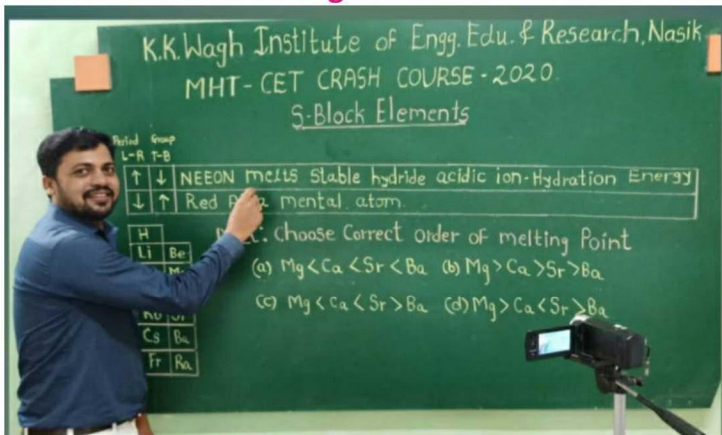 K.K.Wagh Institute of Engg. Edu. & Research, Nasik.
MHT-CET CRASH COURSE-2020.
S-Block Elements
Period Group
L-R T-B
↑ ↓ NEEON melts stable hydride acidic ion-Hydration Energy
↓ ↑ Red mental atom.
H
choose Correct order of melting Point
Li Be
(a) Mg<Ca<Sr<Ba (b) Mg>Ca>Sr>Ba
(c) Mg<Ca<Sr>Ba (d) Mg>Ca<Sr>Ba
Cs Ba
Fr Ra